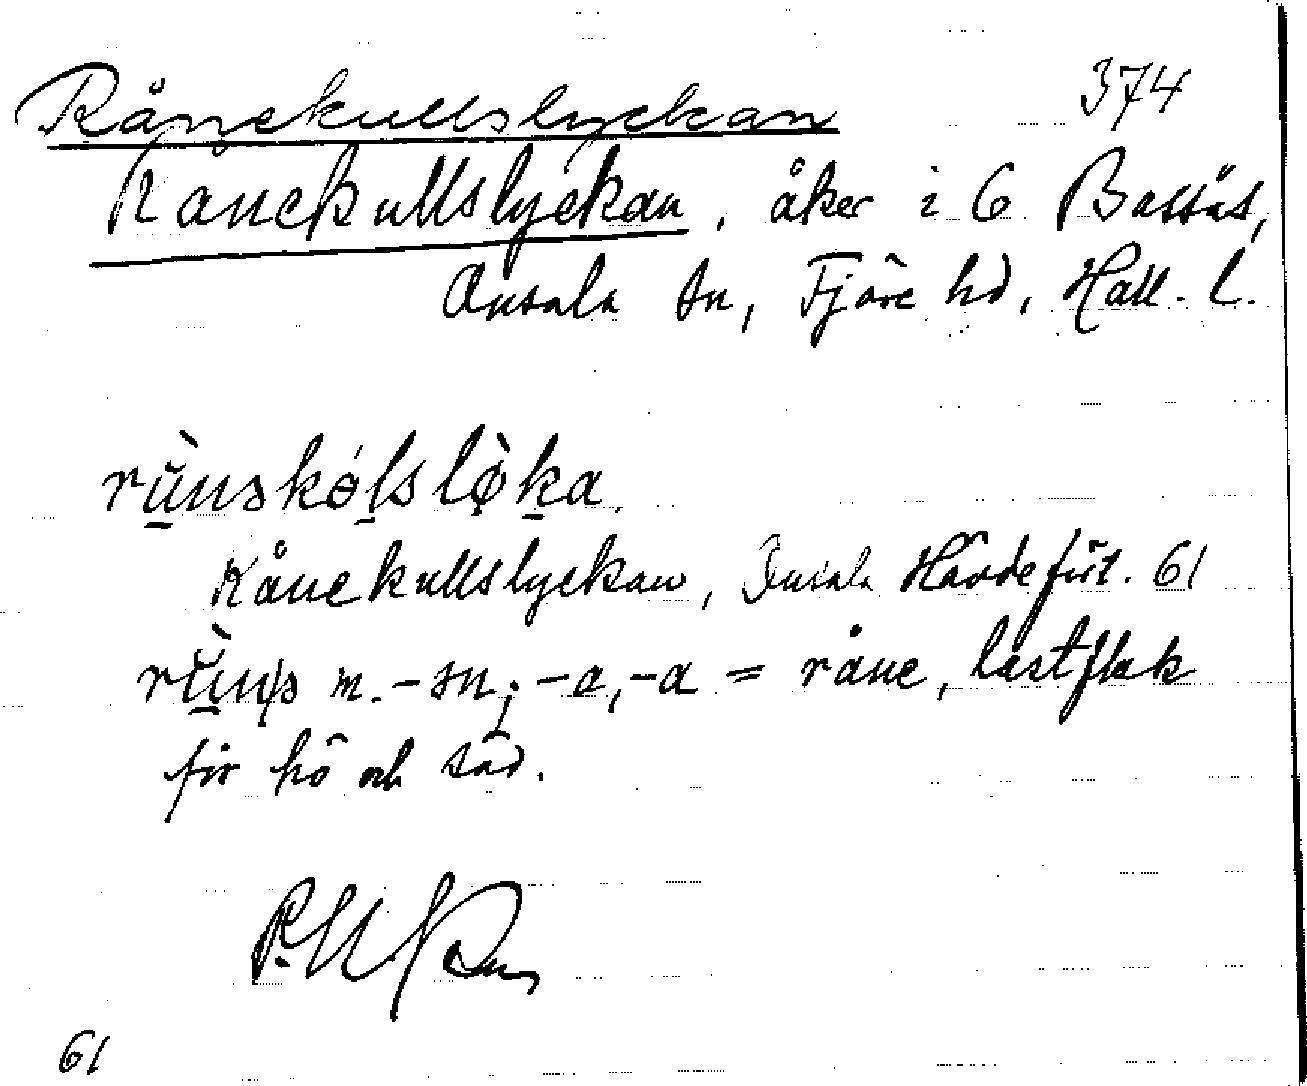 Rånekullslyckan 374
Rånekullslyckan, åker i 6 Bassås,
Onsala sn, Fjäre hd, Hall. l.
rụ̀nskølsløka
Rånekullslyckan, Onsala Hävdeförf. 61
m. -sn, -a, -a = råne, lastflak
för hö och säd.
61